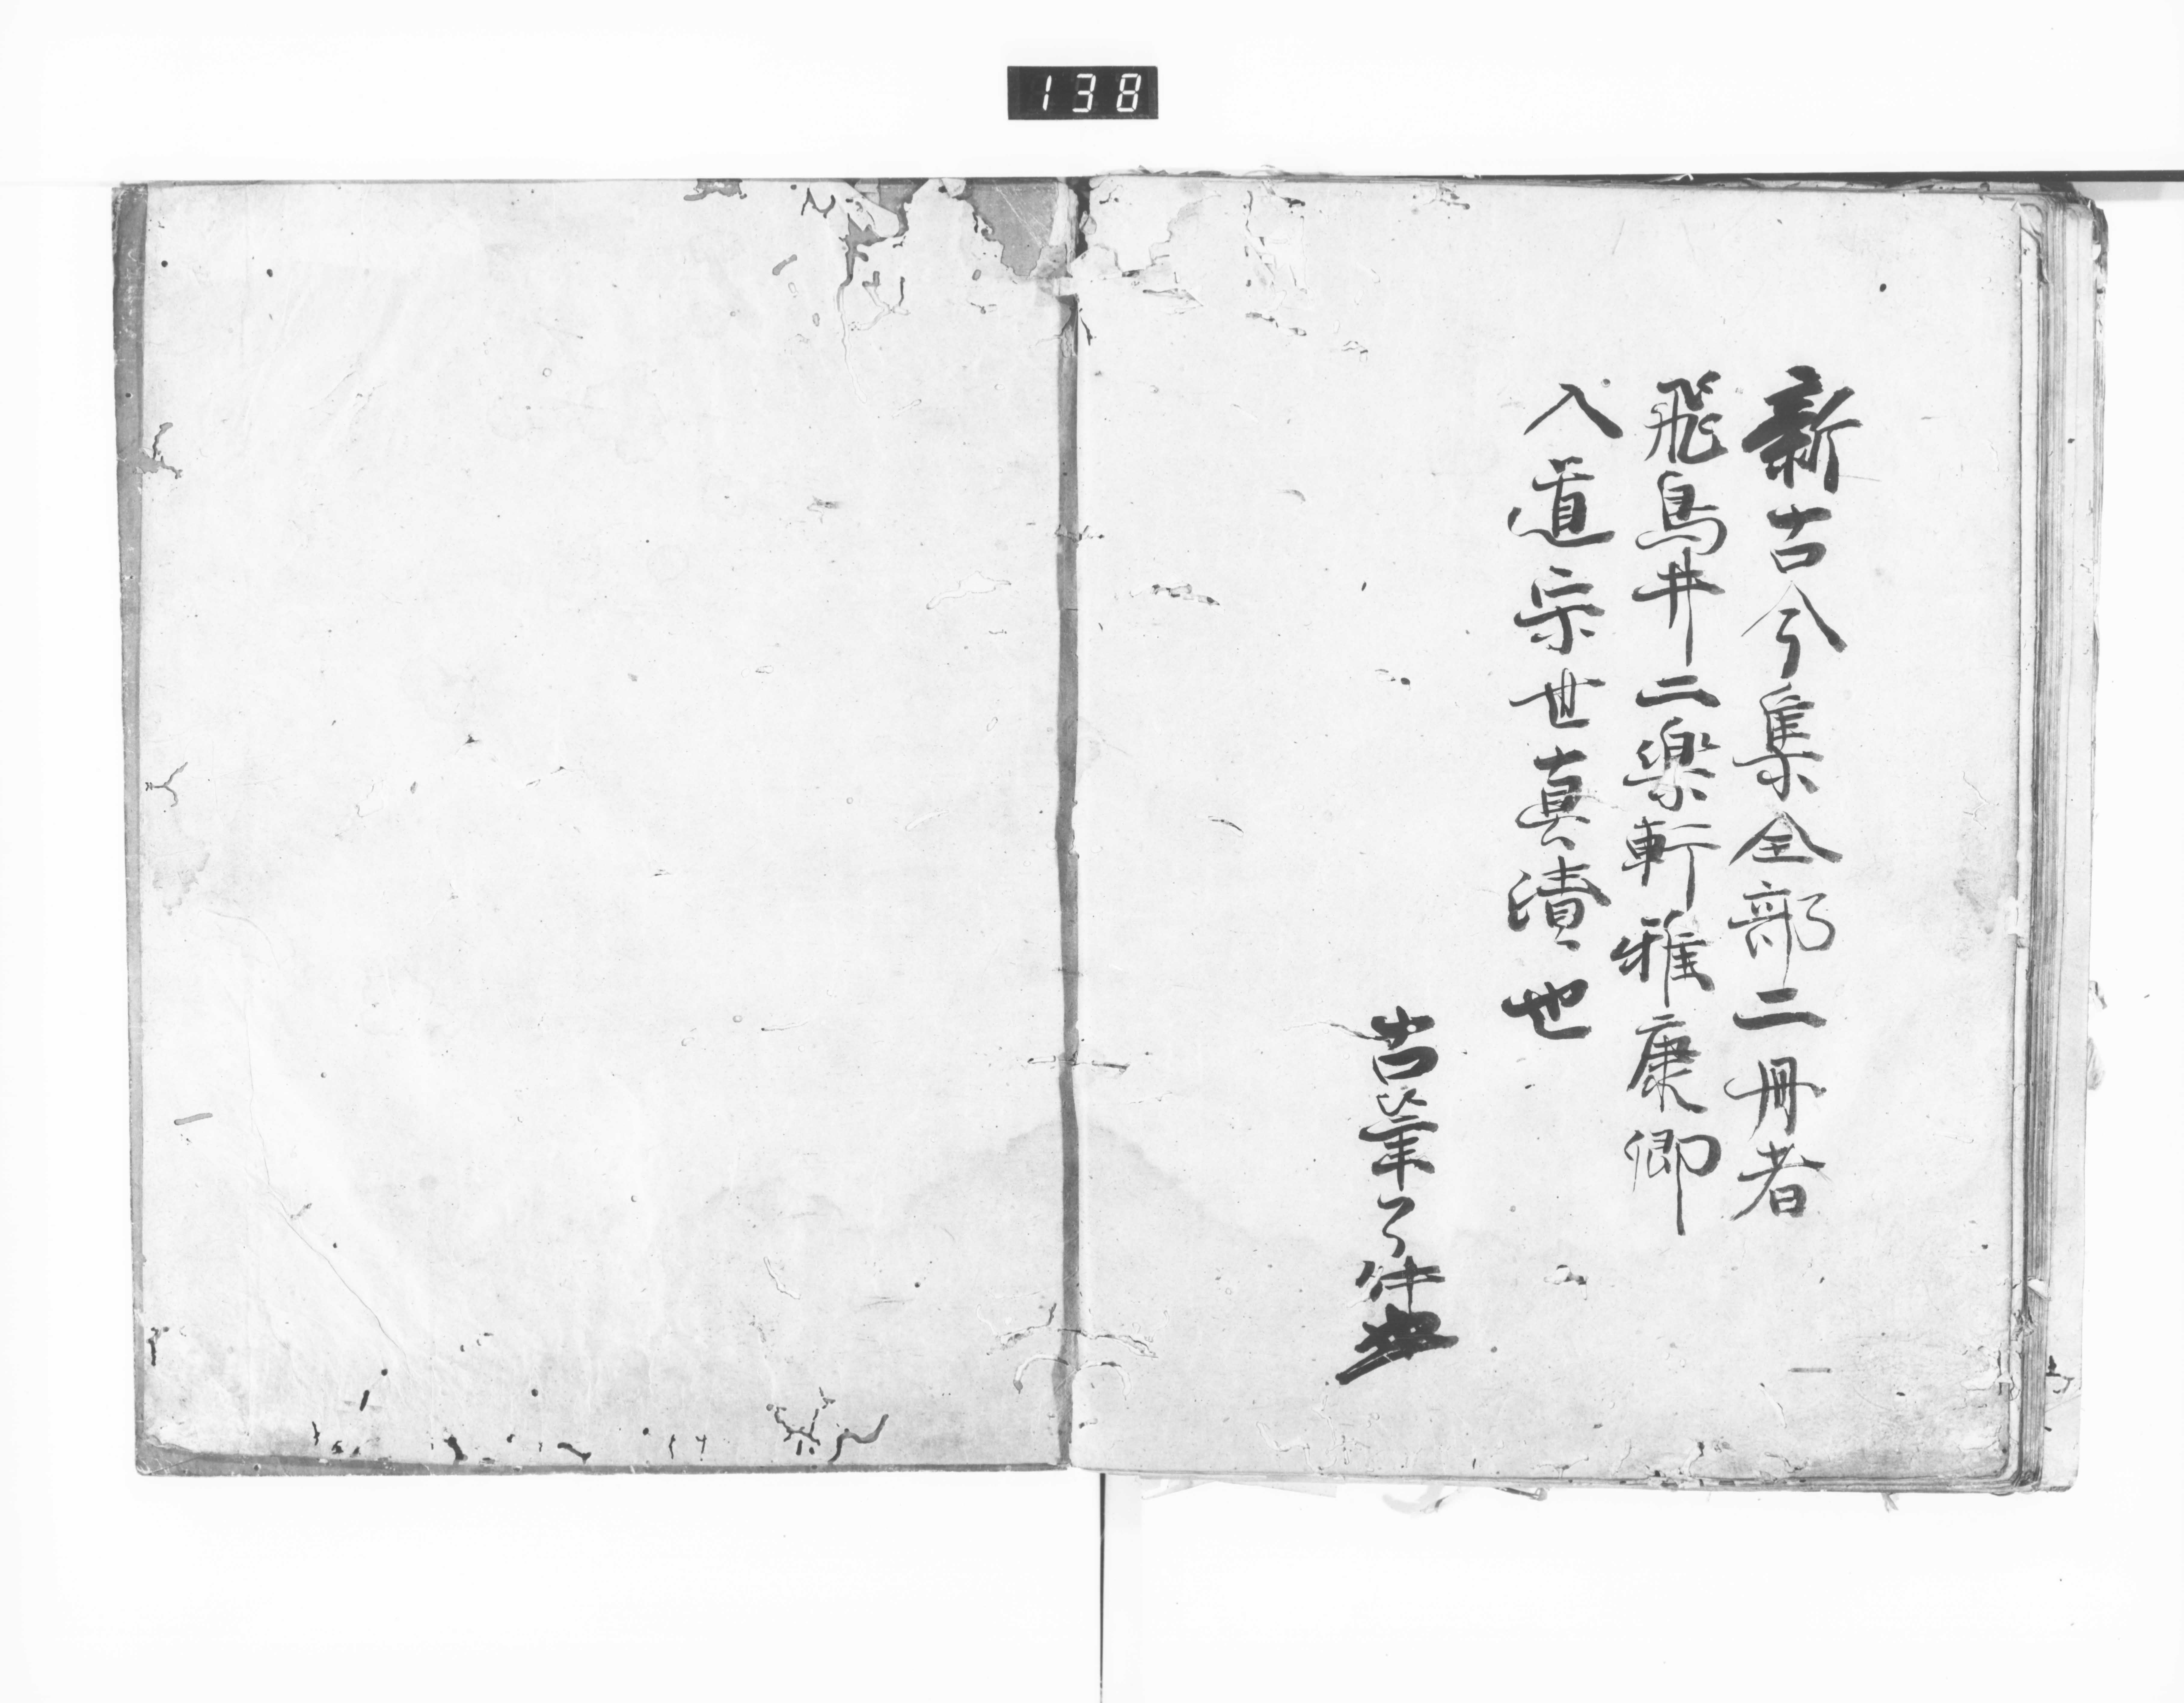 138
新古今集全部二冊者
飛鳥井二楽軒雅康卿
入道宗世真漬也
古筆了仲